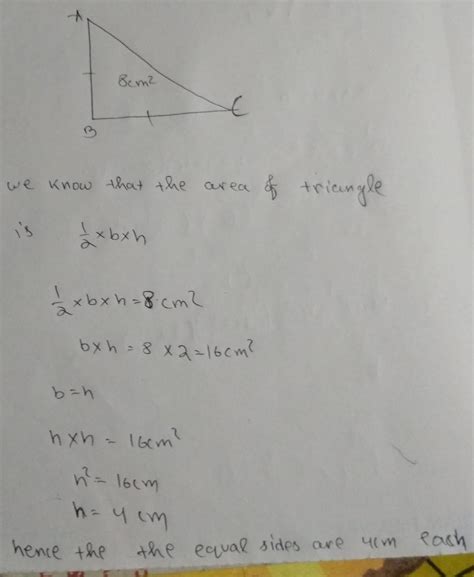 A
8cm²
B
C
we know that the area of triangle
is 1/2 × b × h
1/2 × b × h = 8 cm²
b × h = 8 × 2 = 16cm²
b = h
h × h = 16cm²
h² = 16cm
h = 4 cm
hence the the equal sides are 4cm each